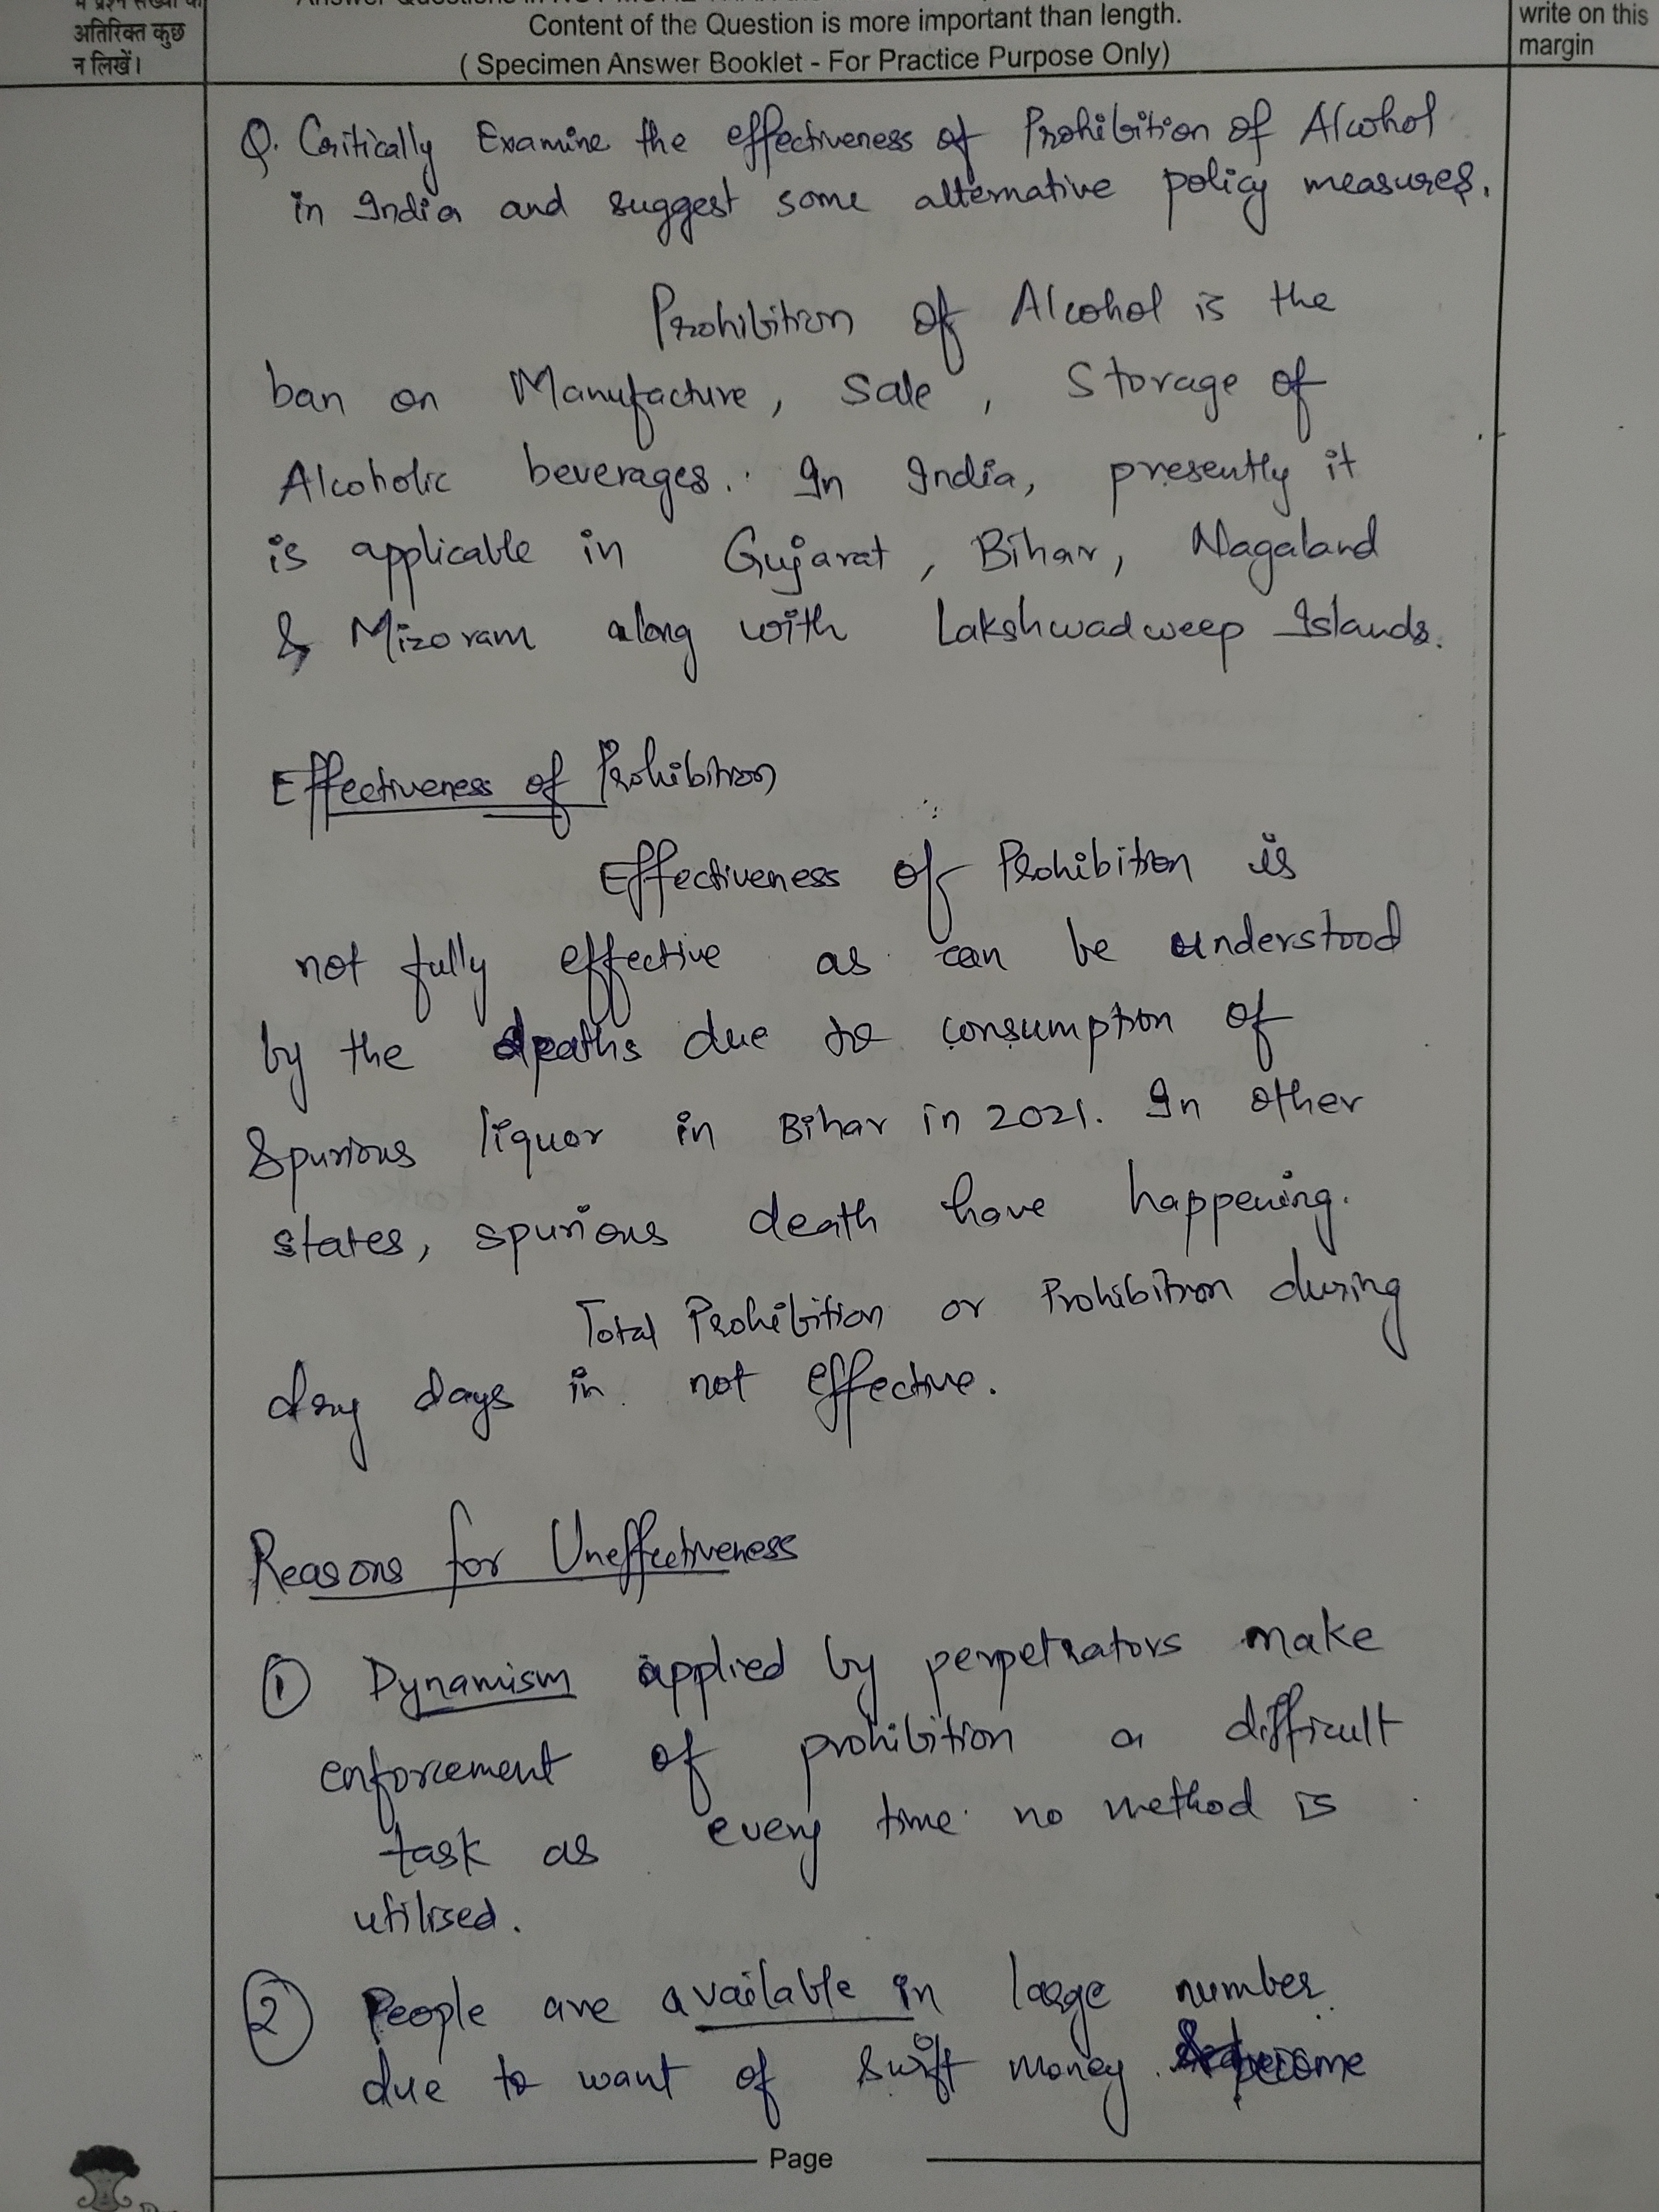 अतिरिक्त कुछ
न लिखें।
Content of the Question is more important than length.
( Specimen Answer Booklet - For Practice Purpose Only)
write on this
margin
Q. Critically Examine the effectiveness of Prohibition of Alcohol
in India and suggest some alternative policy measures.
Prohibition of Alcohol is the
ban on Manufacture, Sale, Storage of
Alcoholic beverages. In India, presently it
is applicable in Gujarat, Bihar, Nagaland
& Mizoram along with Lakshwadweep Islands.
Effectiveness of Prohibition
Effectiveness of Prohibition is
not fully effective as can be understood
by the deaths due to consumption of
Spurious liquor in Bihar in 2021. In other
states, spurious death have happening.
Total Prohibition or Prohibition during
dry days in not effective.
Reasons for Uneffectiveness
① Dynamism applied by perpetrators make
enforcement of prohibition a difficult
task as every time no method is
utilised.
② People are available in large number
due to want of swift money. become
Page